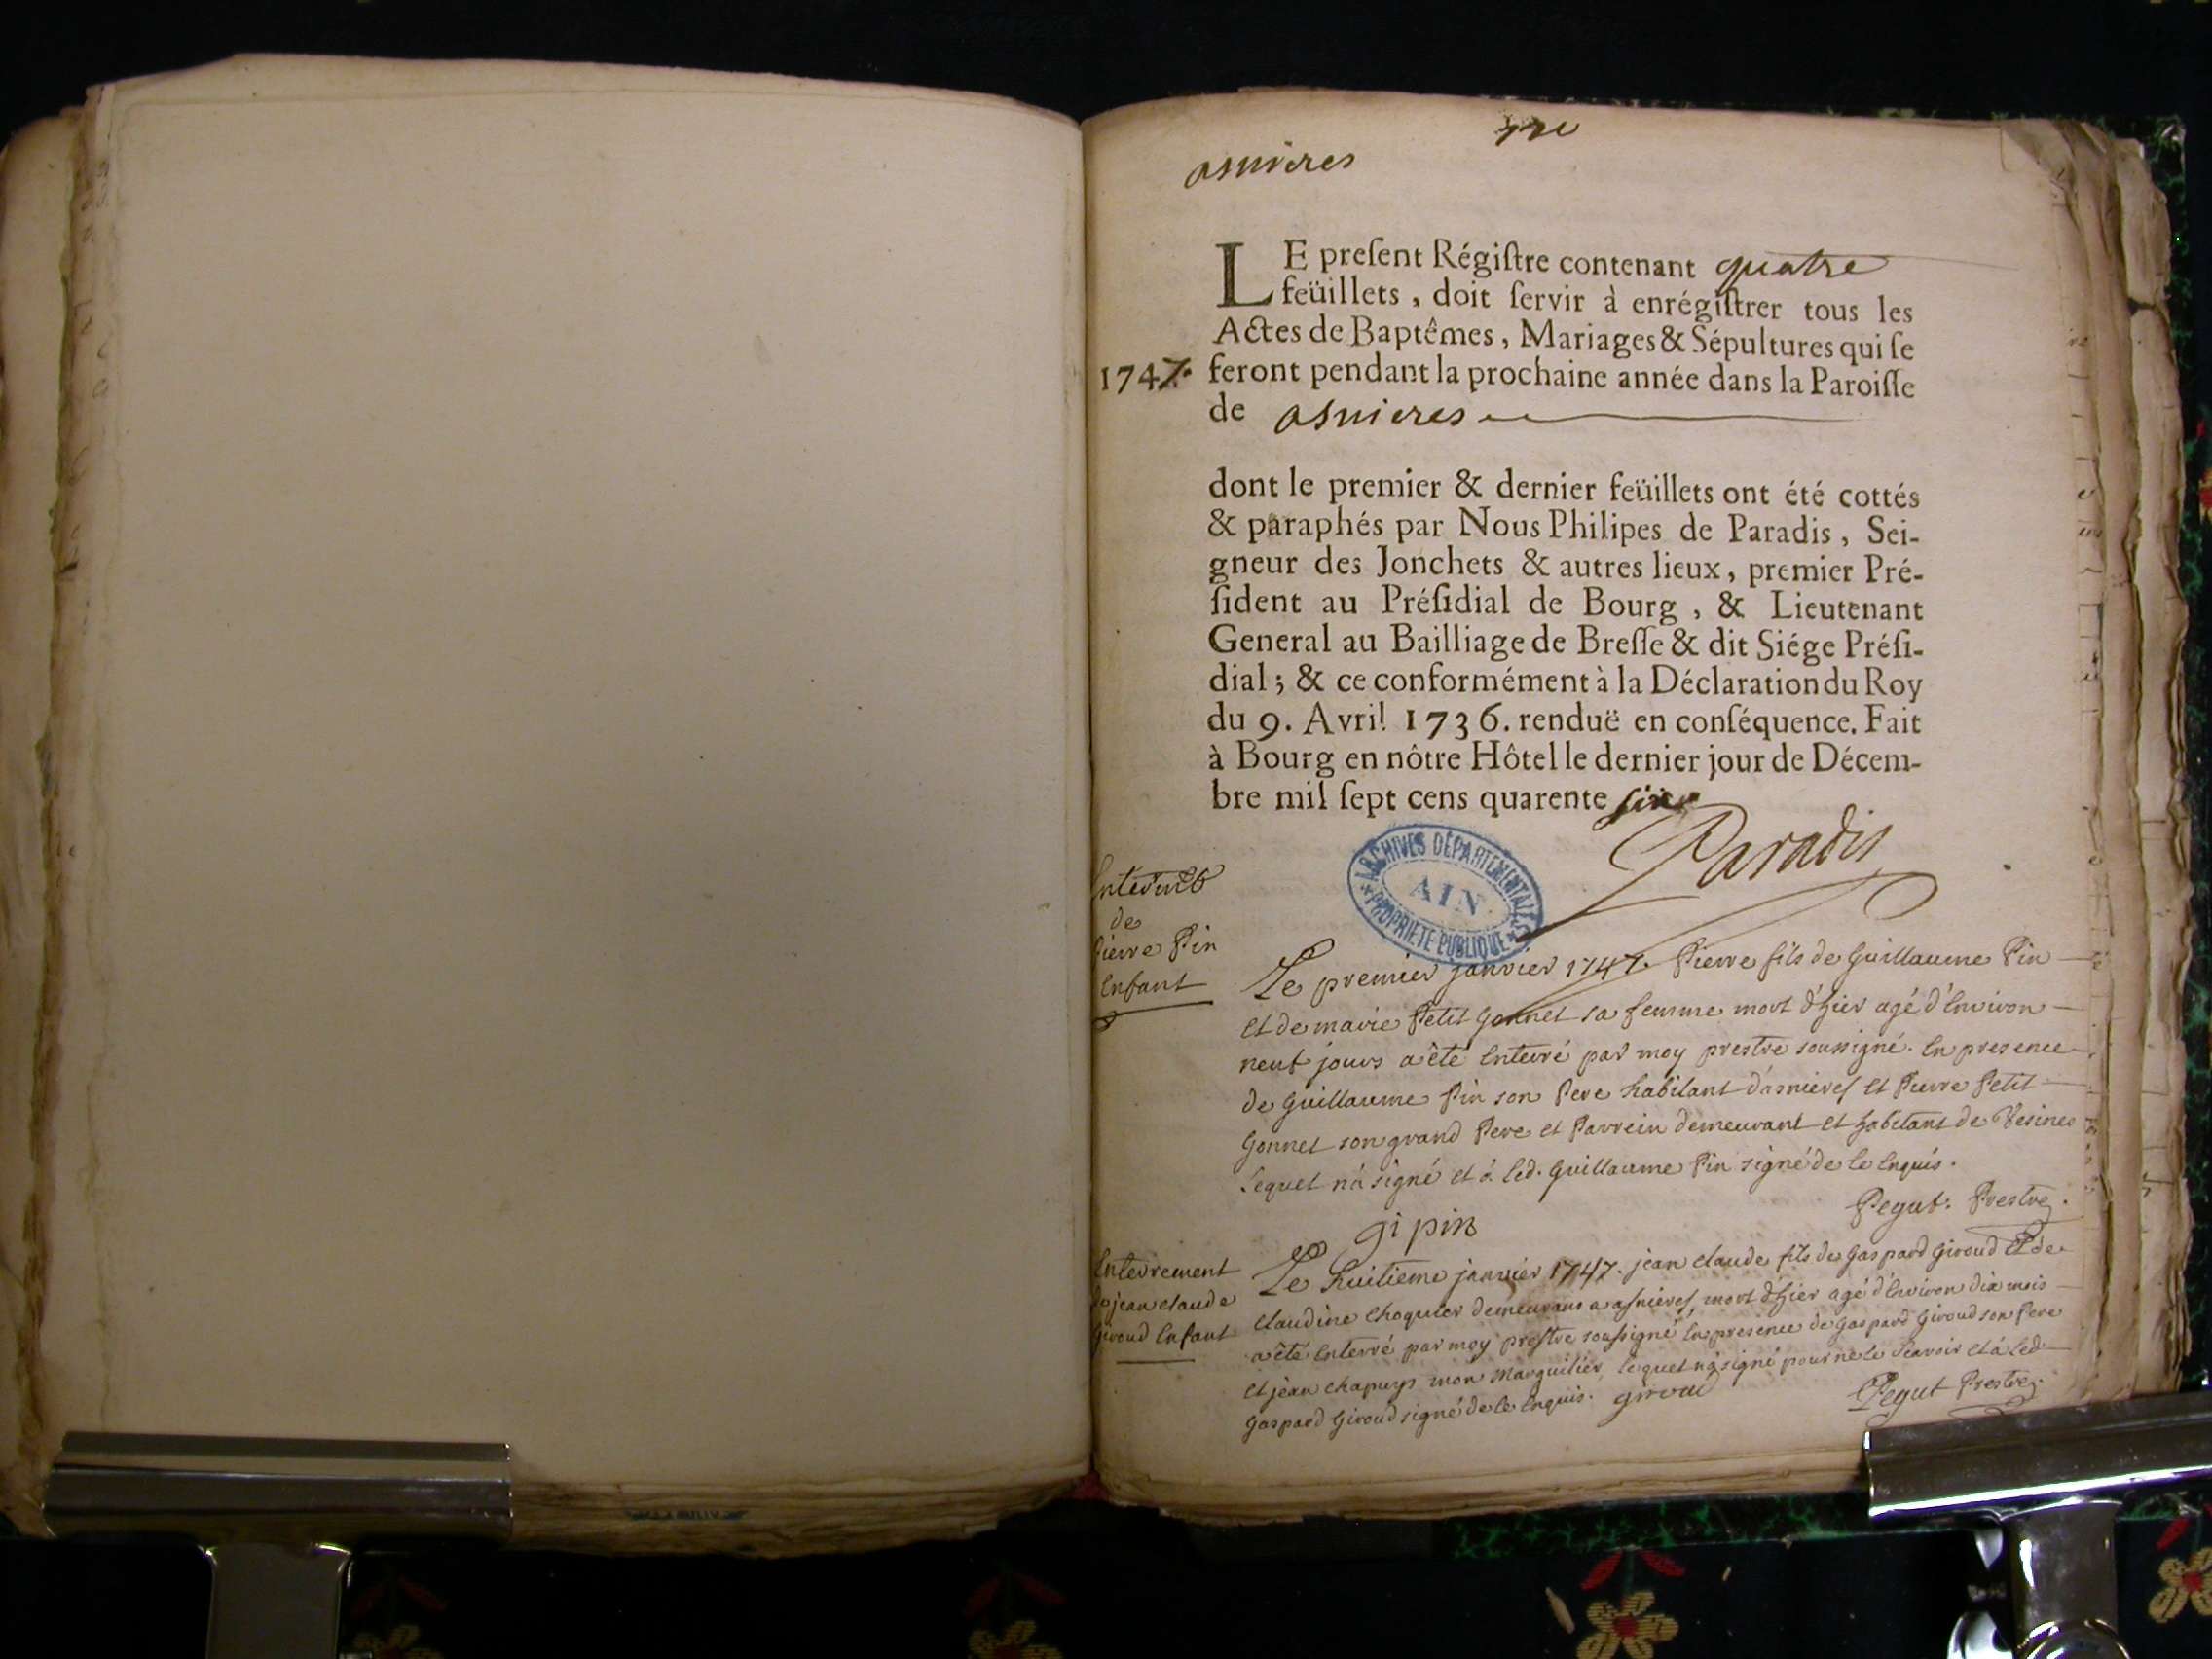 asnieres
LE preſent Régiſtre contenant quatre
feüillets, doit ſervir à enrégiſtrer tous les
Actes de Baptêmes, Mariages & Sépultures qui ſe
1747. feront pendant la prochaine année dans la Paroiſſe
de asnieres
dont le premier & dernier feüillets ont été cottés
& paraphés par Nous Philipes de Paradis, Sei-
gneur des Jonchets & autres lieux, premier Pré-
ſident au Préſidial de Bourg, & Lieutenant
General au Bailliage de Breſſe & dit Siége Préſi-
dial; & ce conformément à la Déclaration du Roy
du 9. Avril 1736. renduë en conſéquence. Fait
à Bourg en nôtre Hôtel le dernier jour de Décem-
bre mil ſept cens quarente six
Paradis
ARCHIVES DÉPARTEMENTALES
AIN
PROPRIÉTÉ PUBLIQUE
de
Pierre Pin
Enfant
Le premier janvier 1747. Pierre fils de Guillaume Pin
Et de marie Petit Gonnet sa femme mort d'hier agé d'Environ
neuf jours a été Enterré par moy prestre soussigné. En presence
de Guillaume Pin son Pere habitant d'asnieres Et Pierre Petit
Gonnet son grand Pere et Parrein demeurant et habitant de Vesines
Lequel n'a signé et à led. Guillaume Pin signé de ce Enquis.
gi pin
Pegut. Prestre.
Enterrement
de jean claude
Giroud Enfant
Le huitieme janvier 1747. jean claude fils de Gaspard Giroud Et de
Claudine Choquier demeurans a asnieres, mort d'hier agé d'Environ dix mois
a été Enterré par moy prestre soussigné En presence de Gaspard Giroud son Pere
Et jean chapuys mon Marguilier, lequel n'a signé pour ne le scavoir et à led
Gaspard Giroud signé de ce Enquis. giroud
Pegut Prestre.